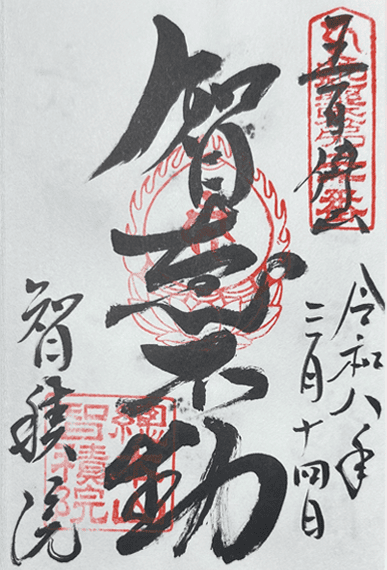 五百佛山
令和八年
三月十四日
智恵不動
智積院
總本山
智積院